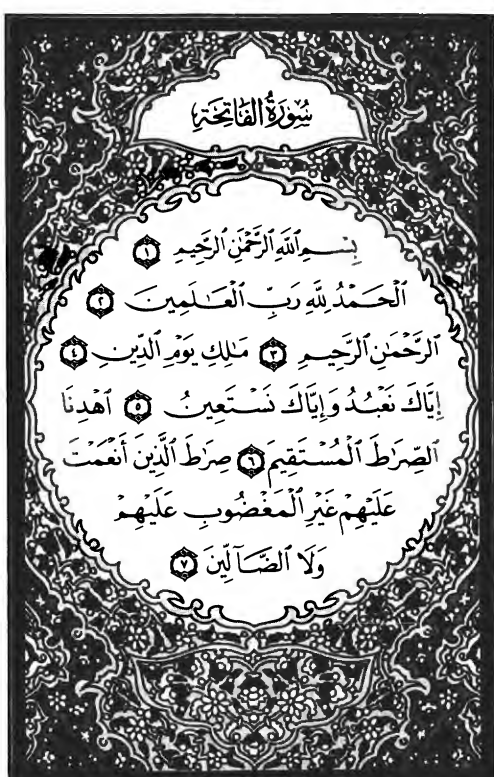 سُورَةُ الفَاتِحَةِ
بِسْمِ ٱللَّهِ ٱلرَّحْمَٰنِ ٱلرَّحِيمِ ۝١
ٱلْحَمْدُ لِلَّهِ رَبِّ ٱلْعَـٰلَمِينَ ۝٢
ٱلرَّحْمَٰنِ ٱلرَّحِيمِ ۝٣ مَـٰلِكِ يَوْمِ ٱلدِّينِ ۝٤
إِيَّاكَ نَعْبُدُ وَإِيَّاكَ نَسْتَعِينُ ۝٥ ٱهْدِنَا
ٱلصِّرَٰطَ ٱلْمُسْتَقِيمَ ۝٦ صِرَٰطَ ٱلَّذِينَ أَنْعَمْتَ
عَلَيْهِمْ غَيْرِ ٱلْمَغْضُوبِ عَلَيْهِمْ
وَلَا ٱلضَّآلِّينَ ۝٧